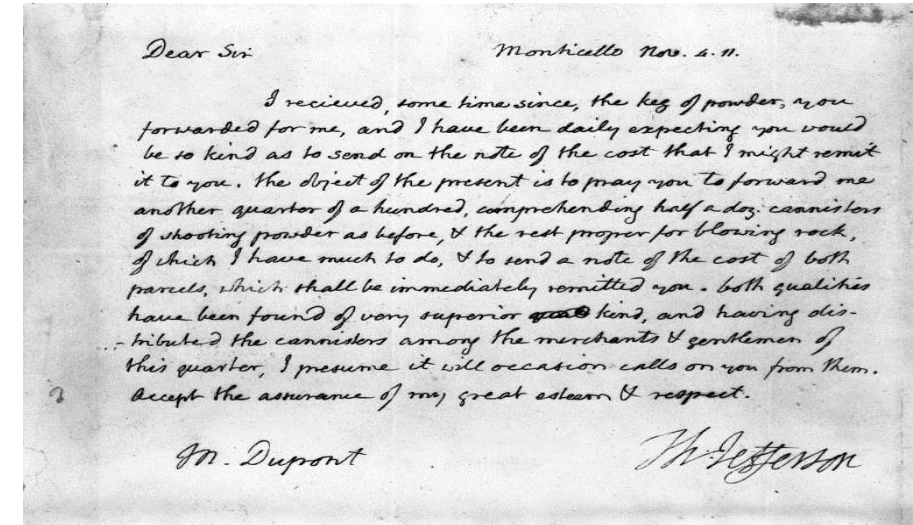 Dear Sir Monticello Nov. 4. 11.
I recieved, some time since, the keg of powder, you
forwarded for me, and I have been daily expecting you would
be so kind as to send on the note of the cost that I might remit
it to you. the object of the present is to pray you to forward me
another quarter of a hundred, comprehending half a doz. cannisters
of shooting powder as before, & the rest proper for blowing rock,
of which I have much to do, & to send a note of the cost of both
parcels, which shall be immediately remitted you. both qualities
have been found of very superior kind, and having dis-
-tributed the cannisters among the merchants & gentlemen of
this quarter, I presume it will occasion calls on you from them.
Accept the assurance of my great esteem & respect.
Th: Jefferson
M. Dupont